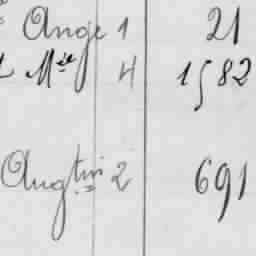 Ange 1 21
Mie 4 1582
Augtin 2 691